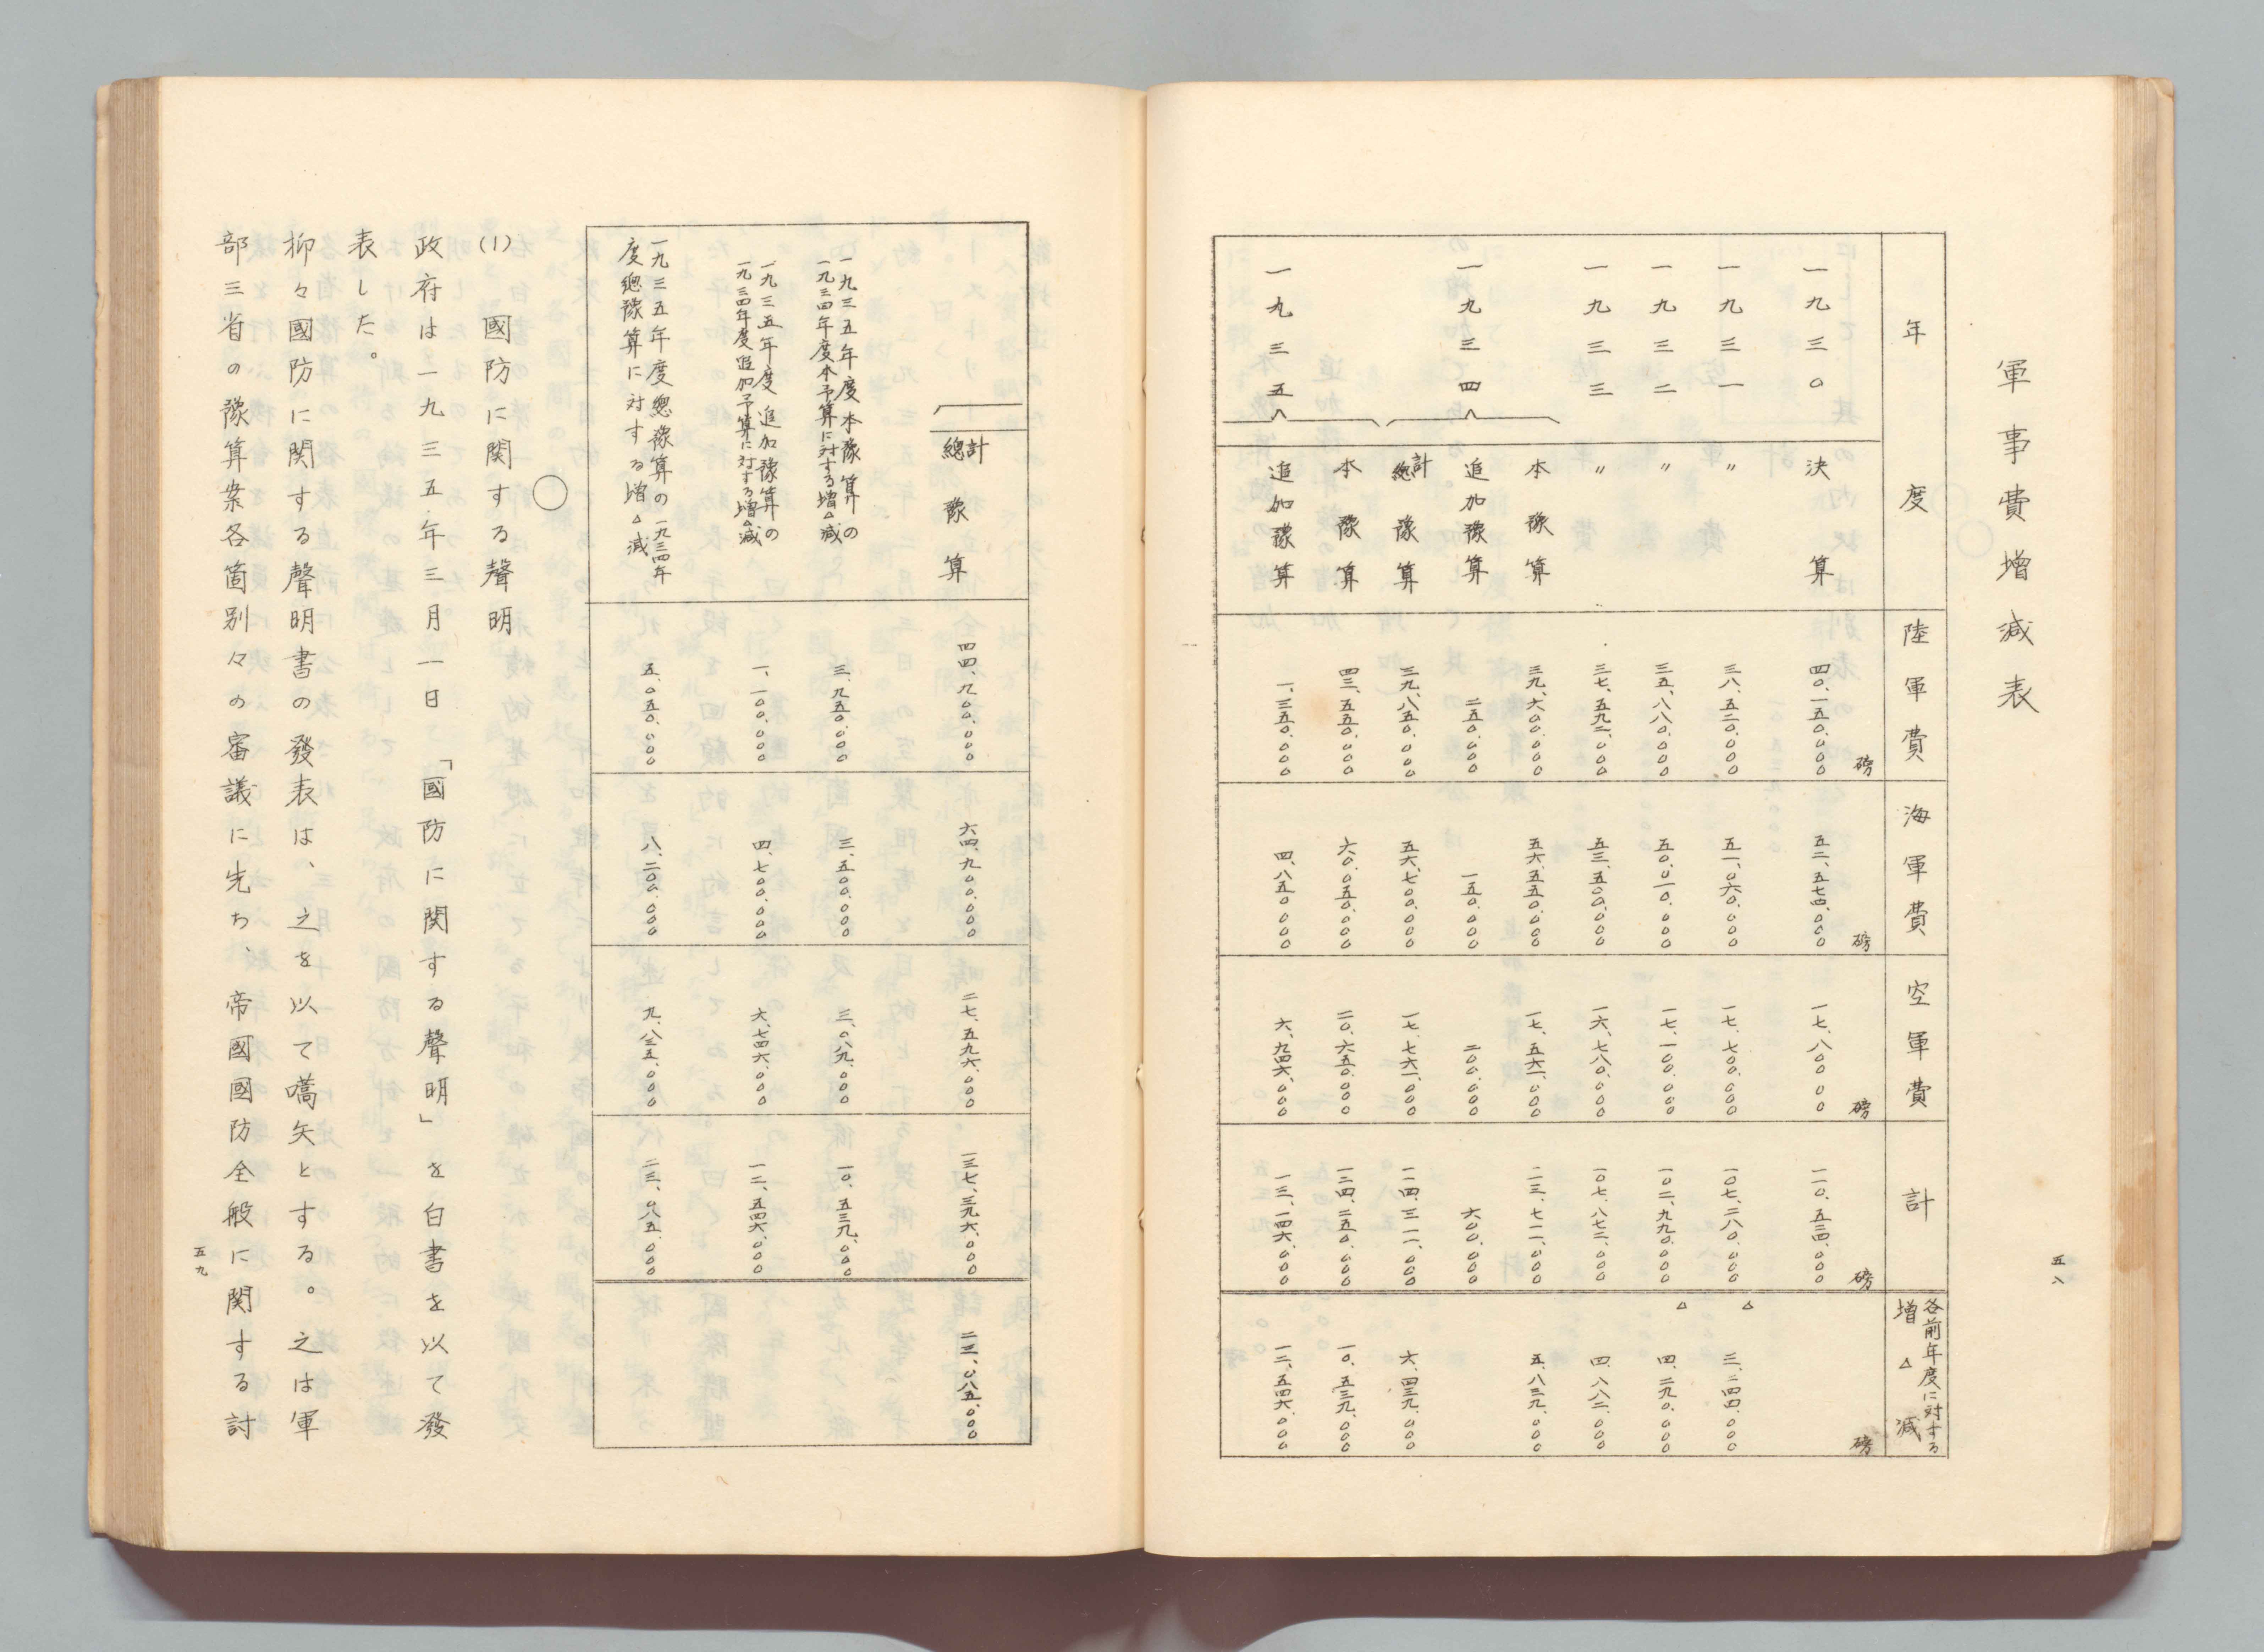 軍事費増減表
五八
年度 陸軍費 海軍費 空軍費 計 各前年度に対する増△減
磅 磅 磅 磅 磅
一九三〇 決算 四〇.一五〇.〇〇〇 五二.五七四.〇〇〇 一七.八〇〇 〇〇 一一〇.五二四.〇〇〇
一九三一 〃 三八.五二〇.〇〇〇 五一.〇六〇.〇〇〇 一七.七〇〇.〇〇〇 一〇七.二八〇.〇〇〇 △ 三.二四四.〇〇〇
一九三二 〃 三五.八八〇.〇〇〇 五〇.〇一〇.〇〇〇 一七.一〇〇.〇〇〇 一〇二.九九〇.〇〇〇 △ 四.二九〇.〇〇〇
一九三三 〃 三七.五九二.〇〇〇 五三.五〇〇.〇〇〇 一六.七八〇.〇〇〇 一〇七.八七二.〇〇〇 四.八八二.〇〇〇
本豫算 三九.六〇〇.〇〇〇 五六.五五〇.〇〇〇 一七.五六一.〇〇〇 一一三.七一一.〇〇〇 五.八三九.〇〇〇
一九三四 追加豫算 二五〇.〇〇〇 一五〇.〇〇〇 二〇〇.〇〇〇 六〇〇.〇〇〇
總計豫算 三九.八五〇.〇〇〇 五六.七〇〇.〇〇〇 一七.七六一.〇〇〇 一一四.三一一.〇〇〇 六.四三九.〇〇〇
本豫算 四三.五五〇.〇〇〇 六〇.〇五〇.〇〇〇 二〇.六五〇.〇〇〇 一二四.二五〇.〇〇〇 一〇.五三九.〇〇〇
一九三五 追加豫算 一.三五〇.〇〇〇 四.八五〇.〇〇〇 六.九四六.〇〇〇 一三.一四六.〇〇〇 一二.五四六.〇〇〇
總計豫算 四四.九〇〇.〇〇〇 六四.九〇〇.〇〇〇 二七.五九六.〇〇〇 一三七.三九六.〇〇〇 二三.〇八五.〇〇〇
一九三五年度本豫算の
一九三四年度本予算に対する増△減 三.九五〇.〇〇〇 三.五〇〇.〇〇〇 三.〇八九.〇〇〇 一〇.五三九.〇〇〇
一九三五年度追加豫算の
一九三四年度追加予算に対する増△減 一.一〇〇.〇〇〇 四.七〇〇.〇〇〇 六.七四六.〇〇〇 一二.五四六.〇〇〇
一九三五年度總豫算の一九三四年
度總豫算に対する増△減 五.〇五〇.〇〇〇 八.二〇〇.〇〇〇 九.八三五.〇〇〇 二三.〇八五.〇〇〇
○
(1) 國防に関する聲明
政府は一九三五年三月一日「國防に関する聲明」を白書を以て發
表した。
抑々國防に関する聲明書の發表は、之を以て嚆矢とする。之は軍
部三省の豫算案各箇別々の審議に先ち、帝國國防全般に関する討
五九